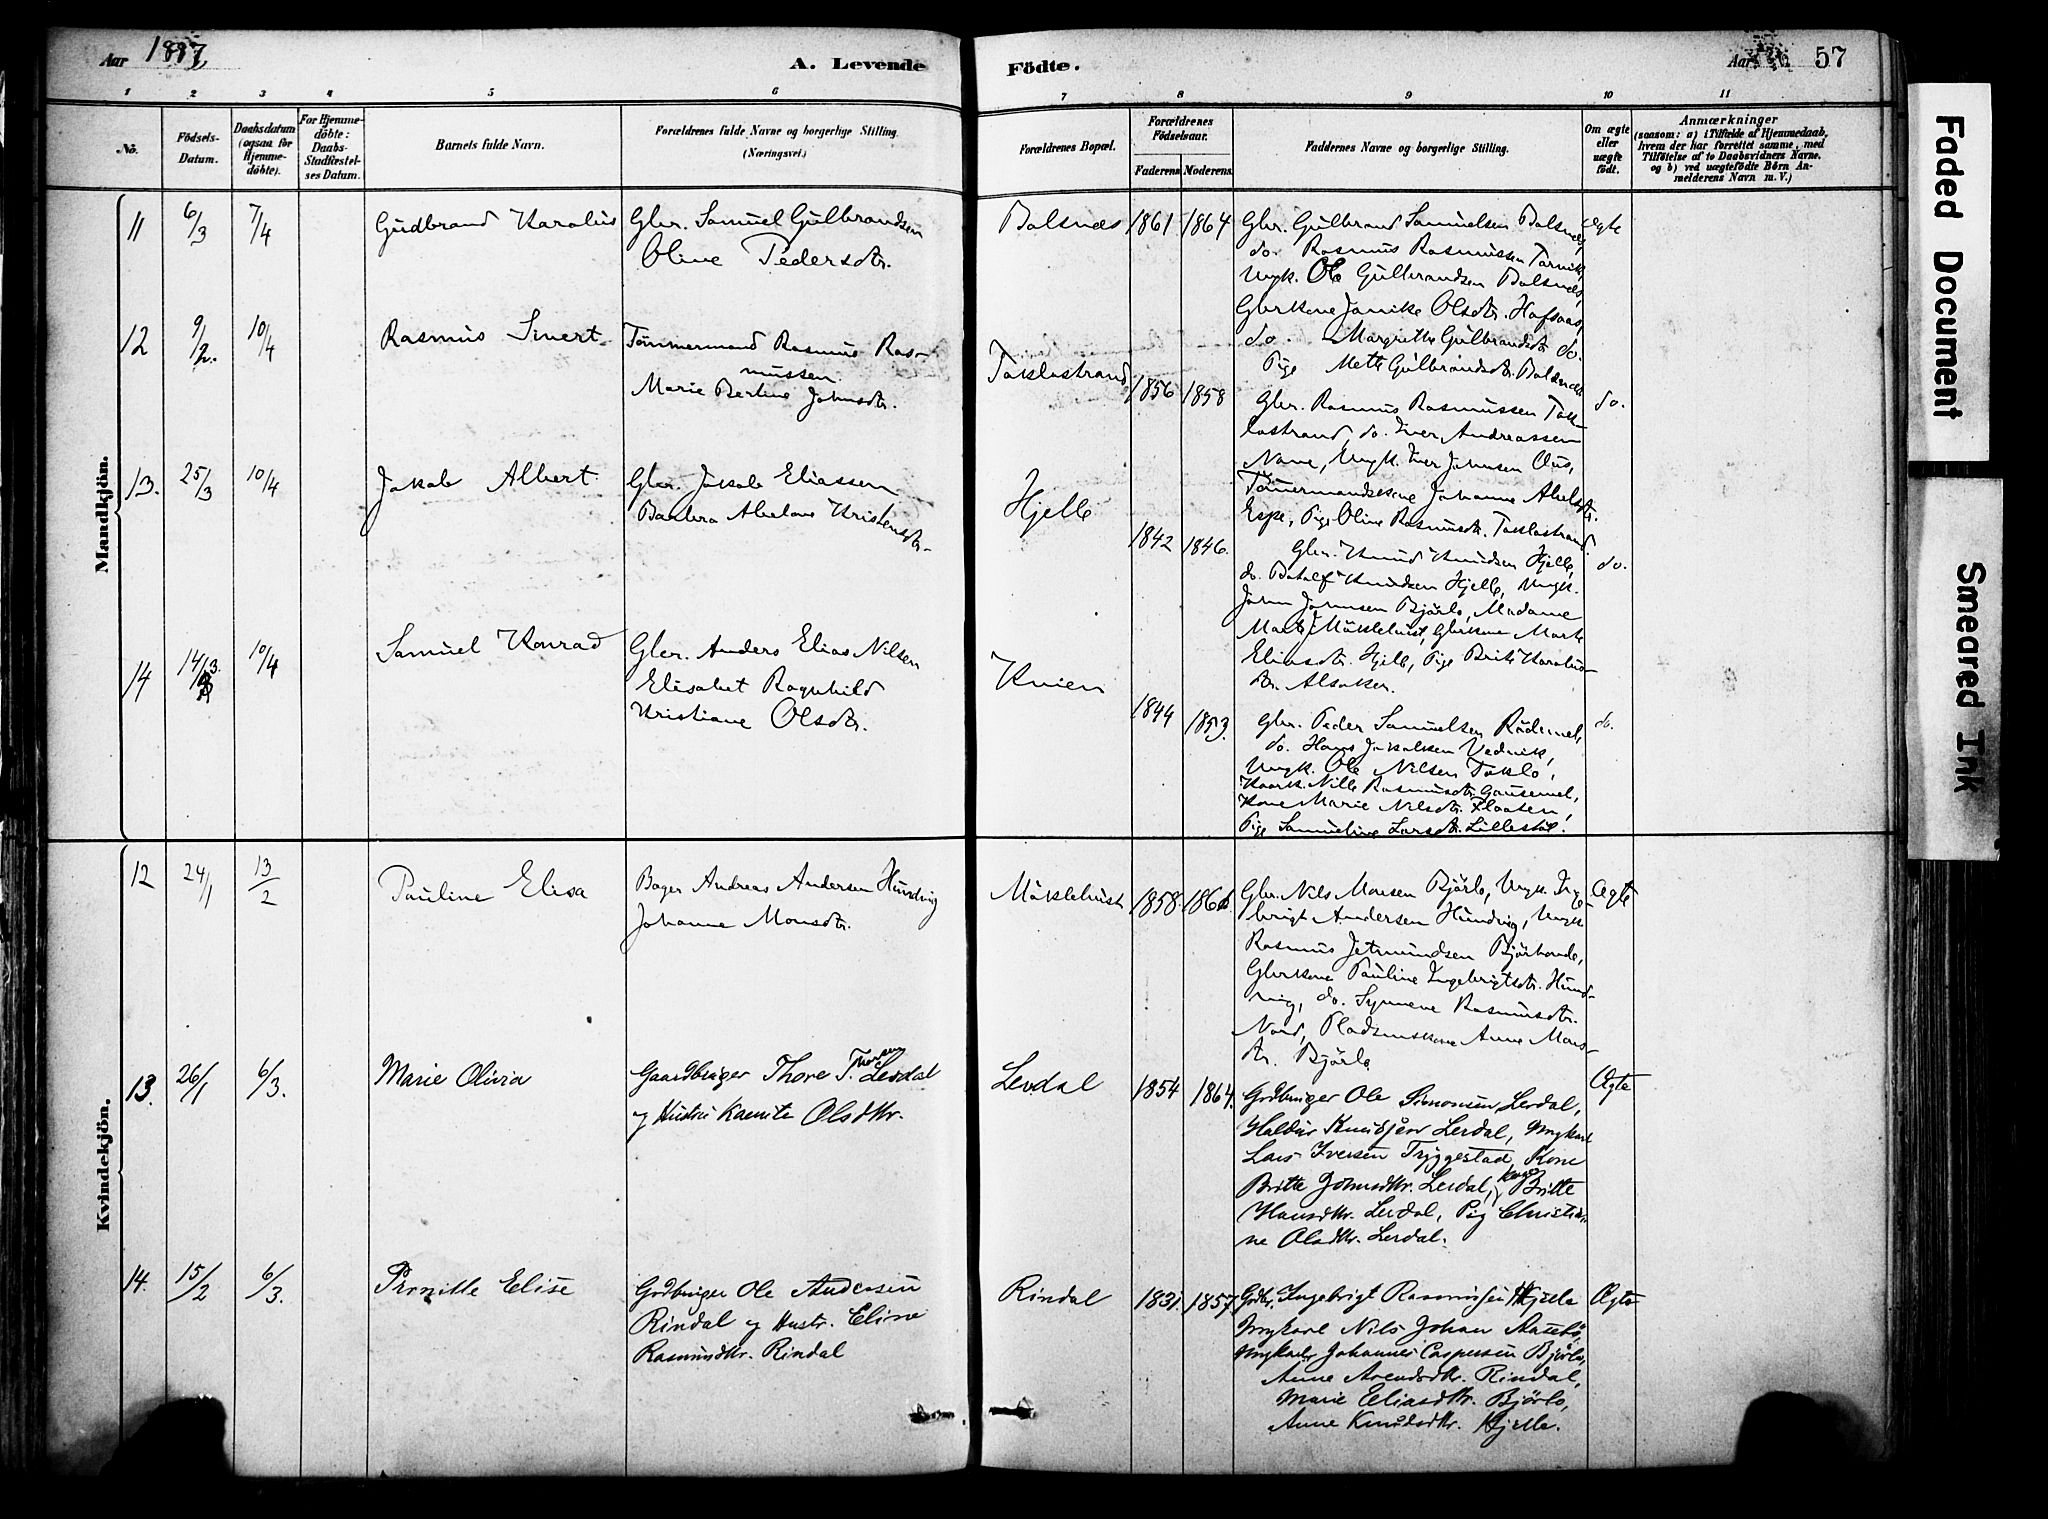 Aar 1887
A. Levende
Födte.
Aar
57
1 2 3 4 5 6 7 8 9 10 11
No.
Födsels-
Datum.
Daabsdatum
(ogsaa for
Hjemme-
döbte).
For Hjemme-
döbte:
Daabs-
Stadfæstel-
ses Datum.
Barnets fulde Navn.
Forældrenes fulde Navne og borgerlige Stilling.
(Næringsvei.)
Forældrenes Bopæl.
Forældrenes
Födselsaar.
Faderens
Moderens
Faddernes Navne og borgerlige Stilling.
Om ægte
eller
uægte
födt.
Anmærkninger
(saasom: a) i Tilfælde af Hjemmedaab,
hvem der har forrettet samme, med
Tilföielse af to Daabsvidners Navne.
og b) ved uægtefödte Börn An-
melderens Navn m. V.)
Mandkjön.
11 6/3 7/4 Gudbrand Karolus
Gbr. Samuel Gulbrandsen
Oline Pedersdtr.
Balsnæs 1861 1864
Gbr. Gulbrand Samuelsen Balsnæs,
do. Rasmus Rasmussen Tarvik,
Ungk. Ole Gulbrandsen Balsnæs,
Gbrkone Janike Olsdtr. Hafsaas,
do. Margrethe Gulbrandsdtr. do.
Pige Mette Gulbrandsdtr. Balsnæs
Ægte
12 9/2. 10/4 Rasmus Sivert
Tömmermand Rasmus Ras-
mussen
Marie Bertine Johnsdtr.
Taklostrand 1856 1858
Gbr. Rasmus Rasmussen Tak-
lostrand, do. Iver Andreassen
Nave, Ungk. Iver Johnsen Aus,
Tömmermandskone Johanne Abelsdtr.
Espe, Pige Oline Rasmusdtr. Taklostrand.
do.
13. 25/3 10/4 Jakob Albert
Gbr. Jakob Eliassen
Barbra Abelone Kristensdtr.
Hjelle 1842 1846.
Gbr. Knud Knudsen Hjelle,
do. Botolf Knudsen Hjelle, Ungk.
John Johnsen Bjørlo, Madame
Marte Mÿklebust, Gbrkone Marte
Eliasdtr. Hjelle, Pige Brite Karolus-
dtr. Alsaker.
do.
14 14/3 10/4 Samuel Konrad
Gbr. Anders Elias Nilsen
Elisabet Ragnhild
Kristiane Olsdtr.
Kvien 1844 1853.
Gbr. Peder Samuelsen Rödemel,
do. Hans Jakobsen Vedvik,
Ungk. Ole Nilsen Taklo,
Kaark. Nille Rasmusdtr. Gausemel,
Kone Marie Nilsdtr. Flaaten,
Pige Samueline Larsdtr. Lillestöl.
do.
Kvindekjön.
12 24/1 13/2 Pauline Elisa
Bager Andreas Andersen Hundvig
Johanne Monsdtr.
Mÿklebust 1858. 1861
Gbr. Nils Monsen Bjørlo, Ungk. Inge-
brigt Andersen Hundvig, Ungk.
Rasmus Jetmundsen Bjørhovde,
Gbrkone Pauline Ingebrigtsdtr. Hund-
vig, do. Synneve Rasmusdtr.
Nord, Pladsmskone Anne Mons-
dtr. Bjørlo
Ægte
13. 26/1 6/3. Marie Olivia
Gaardbruger Thore T. Thoresen Levdal
og Hustru Kamita Olsdtr.
Levdal 1854 1864.
Grdbruger Ole Simonsen Levdal,
Haldur Knudsen Levdal, Ungkarl
Lars Iversen Tryggestad, Kone
Britte Johnsdtr. Levdal, Kone Britte
Hansdtr. Levdal, Pig Christia-
ne Olsdtr. Levdal.
Ægte
14. 15/2 6/3. Pernille Elise
Grdbruger Ole Andersen
Rindal og Hustr. Eline
Rasmusdtr. Rindal
Rindal 1831. 1857.
Grdbr. Ingebrigt Rasmussen Hjelle
Ungkarl Nils Johan Aasebö,
Ungkarl Johannes Caspersen Bjørlo,
Anne Arendsdtr. Rindal,
Marie Eliasdtr. Bjørlo,
Anne Knudsdtr. Hjelle.
Ægte
Faded Document
Smeared Ink